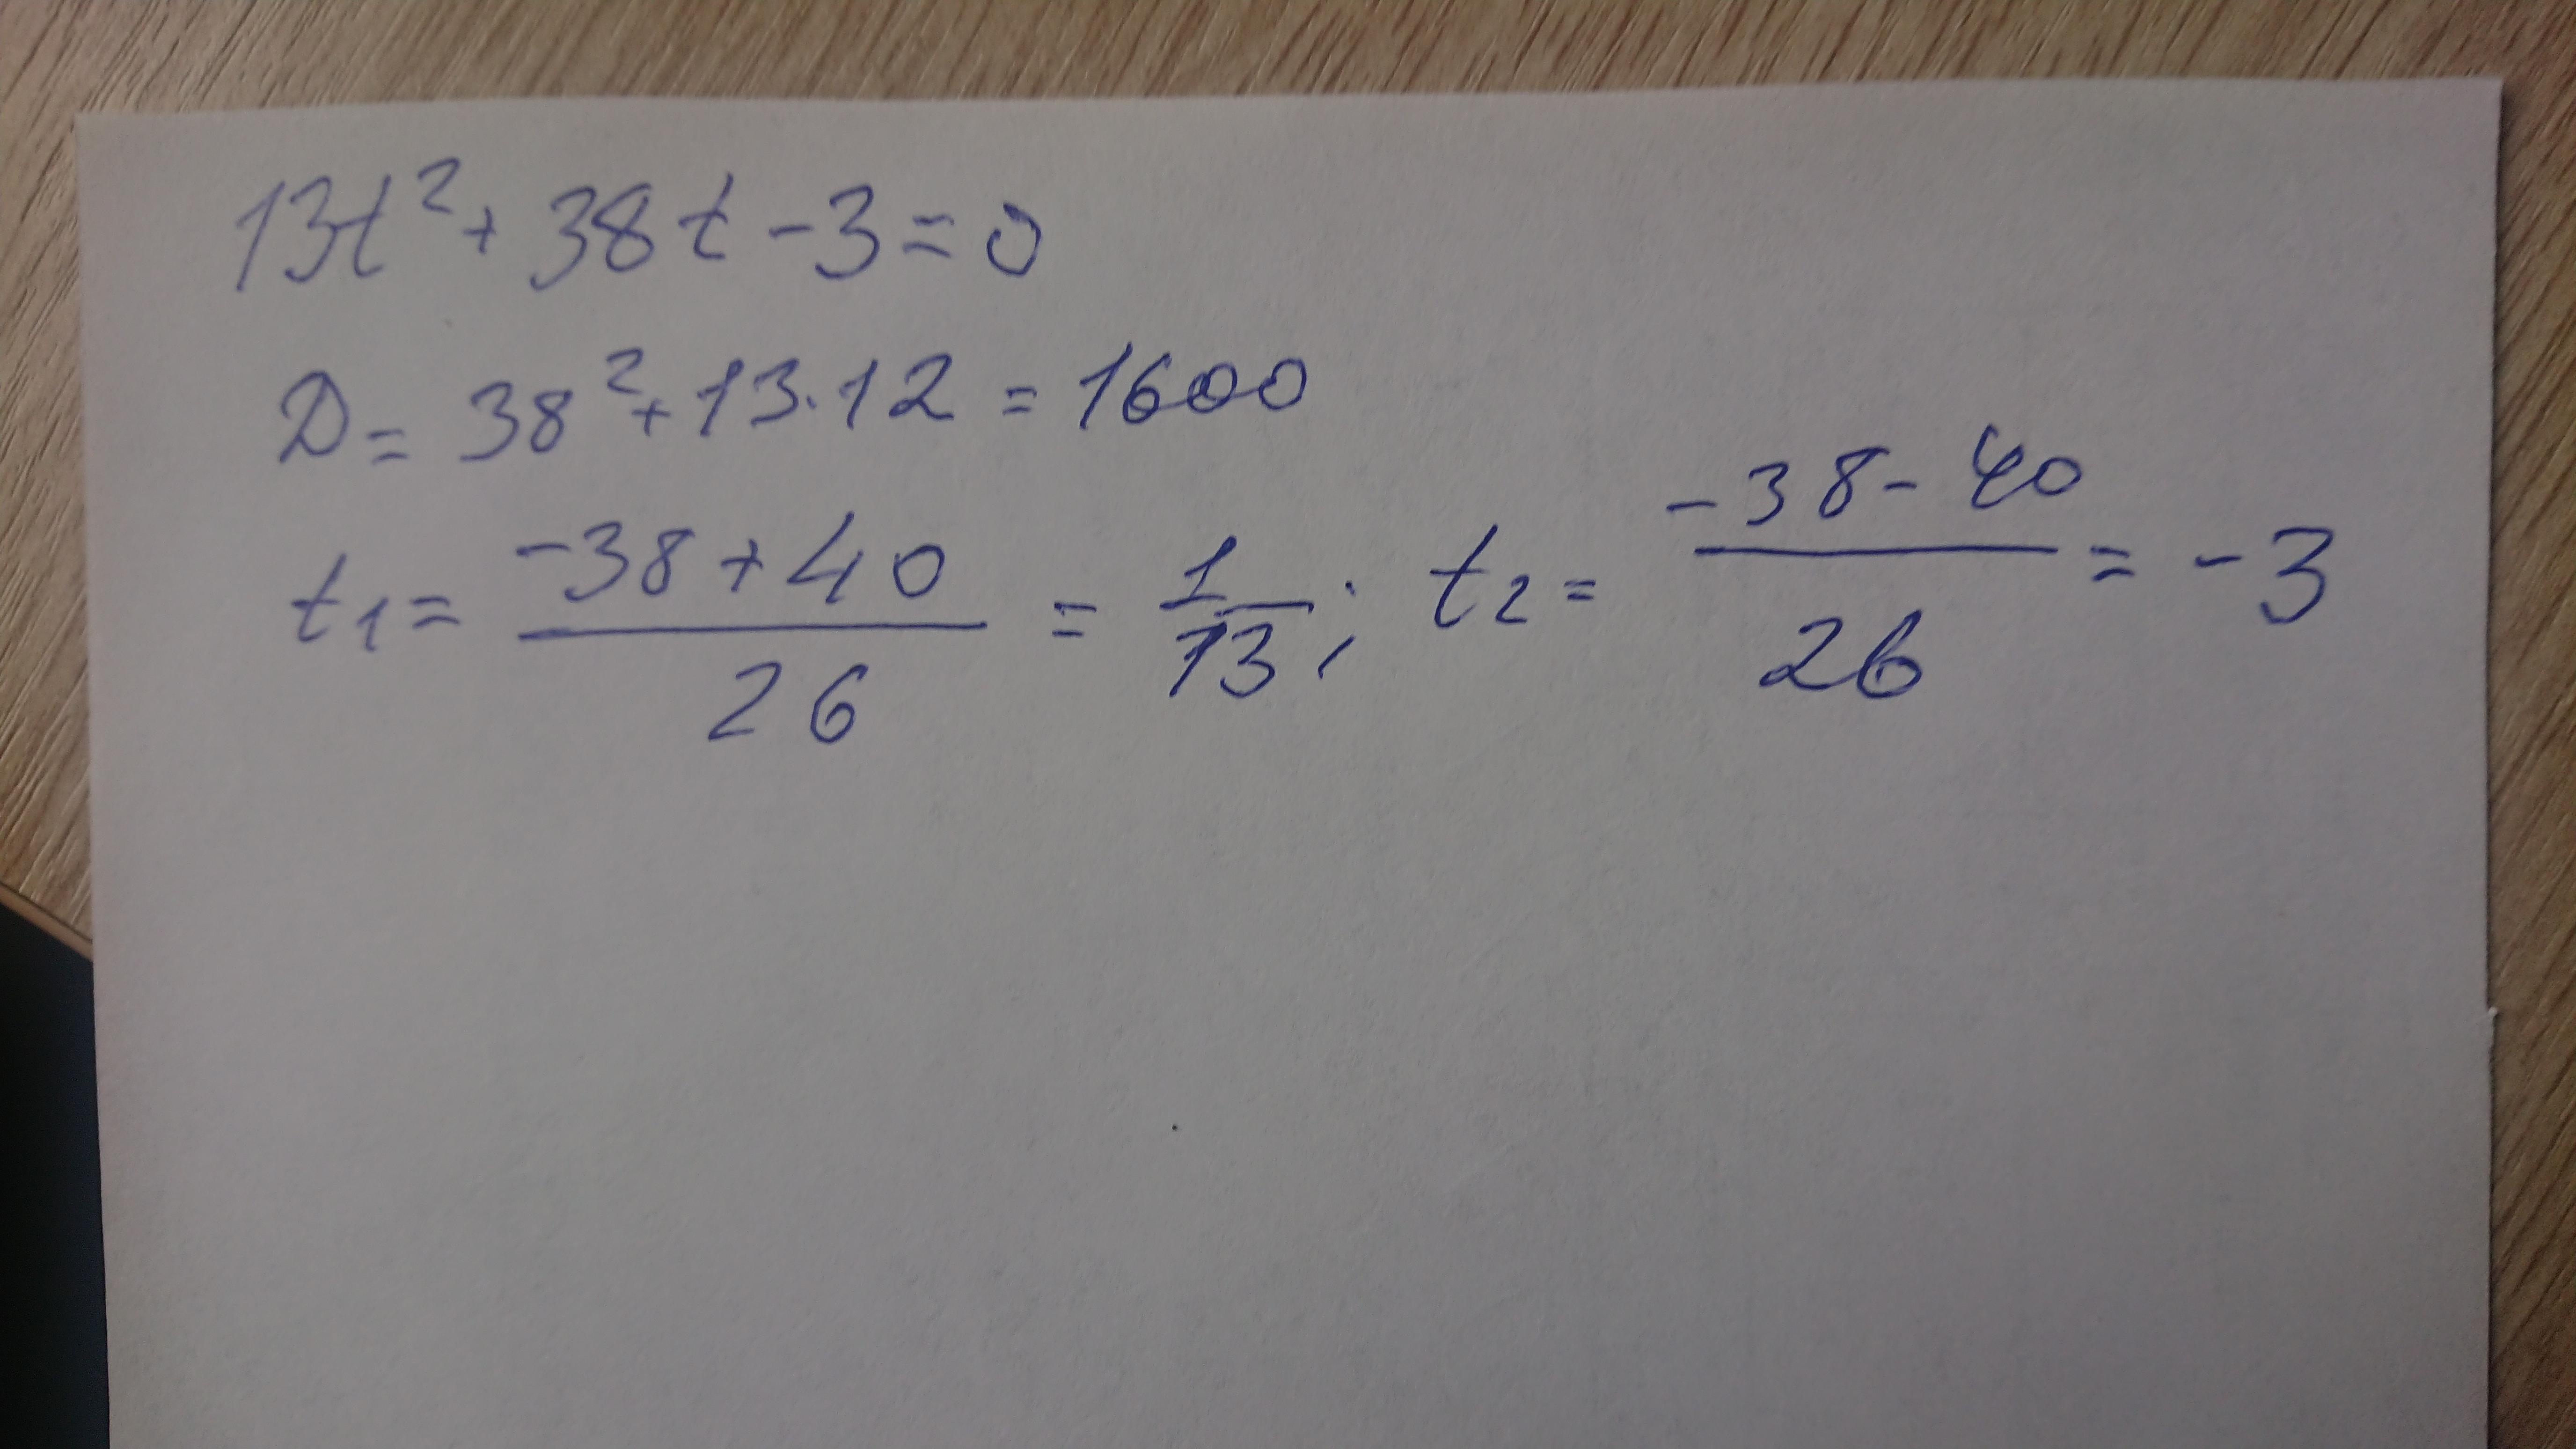 13t² + 38t - 3 = 0
D = 38² + 13·12 = 1600
t₁ = (-38 + 40)/26 = 1/13; t₂ = (-38 - 40)/26 = -3